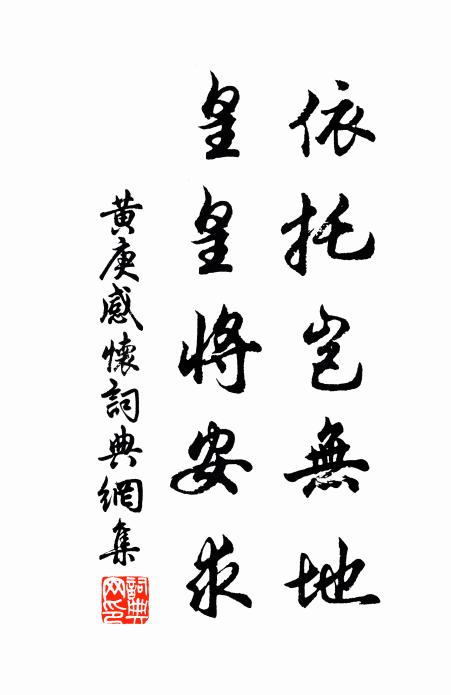 依托豈無地
皇皇將安求
黄庚感懷詞典網集
詞典網印